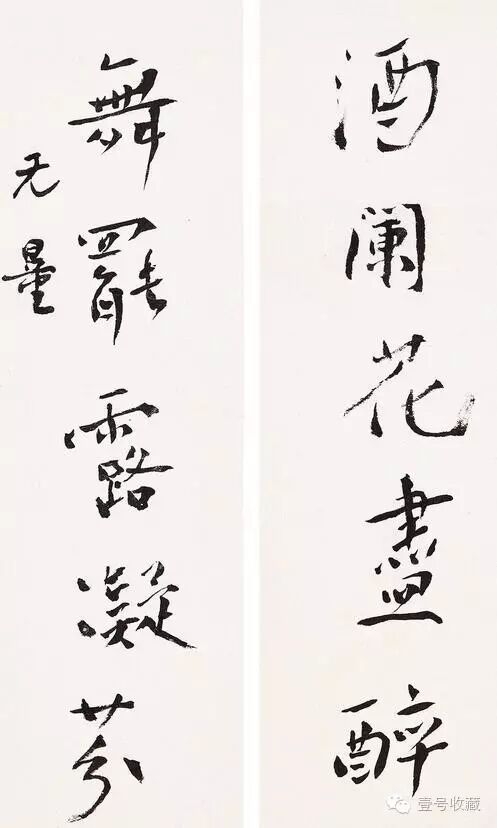 酒阑花盡醉
舞罷露凝芬
无量
壹号收藏